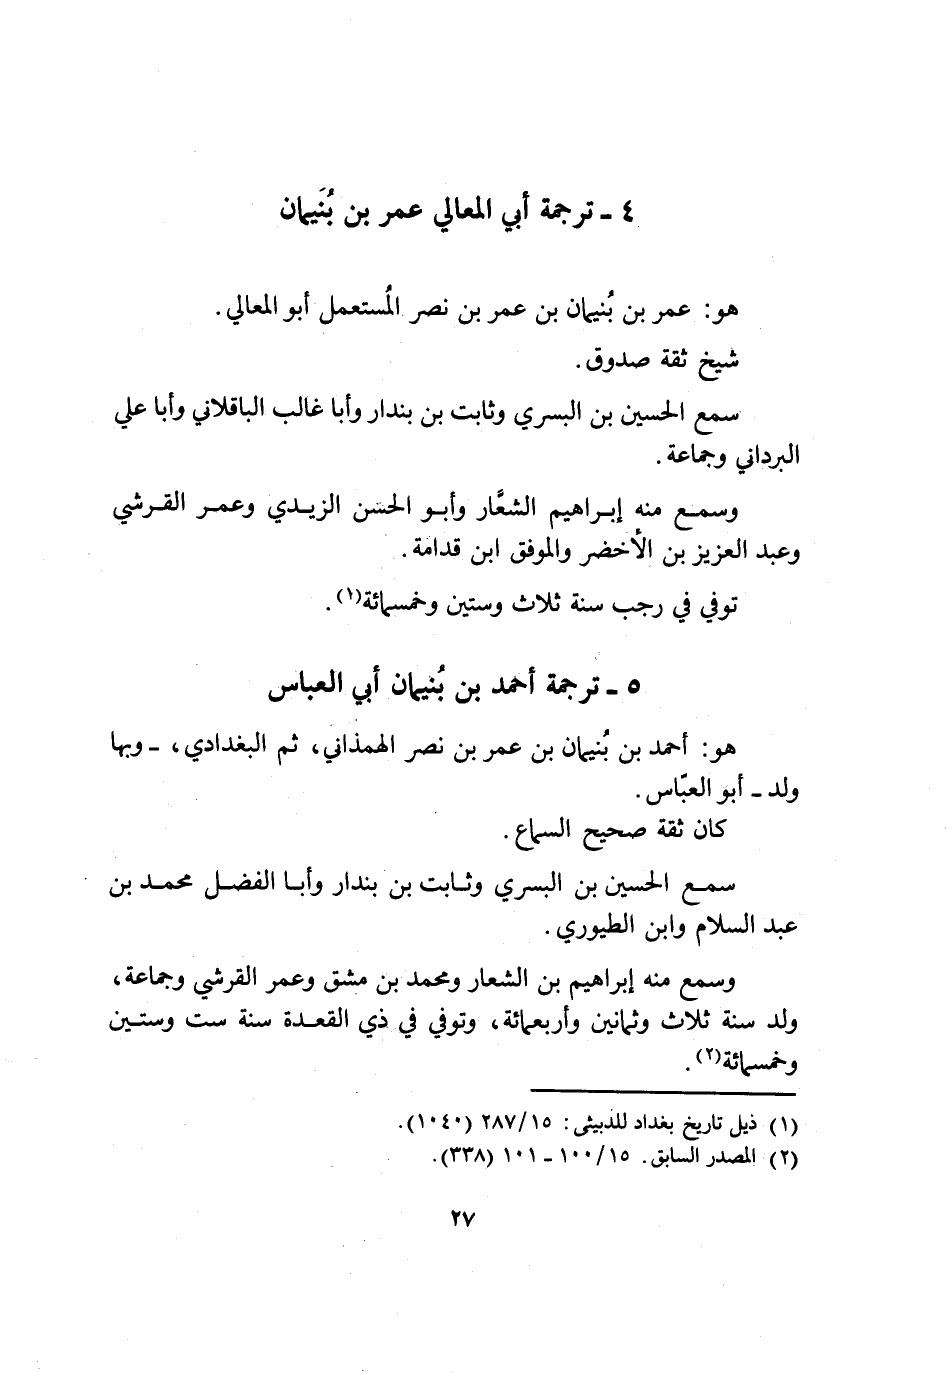 ٤ ـ ترجمة أبي المعالي عمر بن بُنَيمان
هو: عمر بن بُنيمان بن عمر بن نصر المُستعمل أبو المعالي.
شيخ ثقة صدوق.
سمع الحسين بن البسري وثابت بن بندار وأبا غالب الباقلاني وأبا علي
البرداني وجماعة.
وسمع منه إبراهيم الشعَّار وأبو الحسن الزيدي وعمر القرشي
وعبد العزيز بن الأخضر والموفق ابن قدامة.
توفي في رجب سنة ثلاث وستين وخمسمائة(١).
٥ ـ ترجمة أحمد بن بُنيمان أبي العباس
هو: أحمد بن بُنيمان بن عمر بن نصر الهمذاني، ثم البغدادي، ـ وبها
ولد ـ أبو العبّاس.
كان ثقة صحيح السماع.
سمع الحسين بن البسري وثابت بن بندار وأبا الفضل محمد بن
عبد السلام وابن الطيوري.
وسمع منه إبراهيم بن الشعار ومحمد بن مشق وعمر القرشي وجماعة،
ولد سنة ثلاث وثمانين وأربعمائة، وتوفي في ذي القعدة سنة ست وستين
وخمسمائة(٢).
(١) ذيل تاريخ بغداد للدبيثى: ١٥/٢٨٧ (١٠٤٠).
(٢) المصدر السابق. ١٥/١٠٠ ـ ١٠١ (٣٣٨).
٢٧